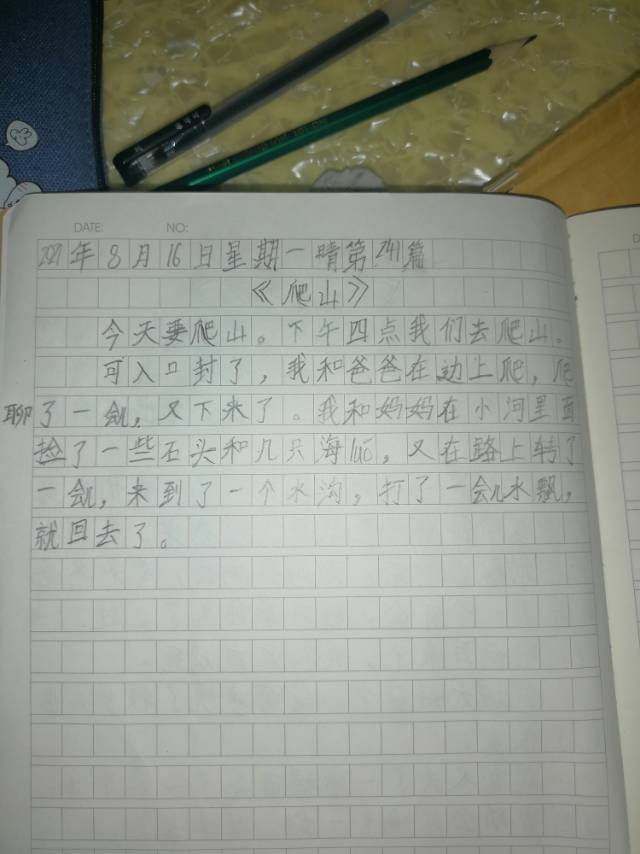 DATE: NO:
2021年8月16日星期一晴第241篇
《爬山》
今天要爬山。下午四点我们去爬山。
可入口封了，我和爸爸在边上爬，爬
聊了一会儿，又下来了。我和妈妈在小河里面
捡了一些石头和几只海luó，又在路上转了
一会儿，来到了一个水沟，打了一会儿水飘，
就回去了。